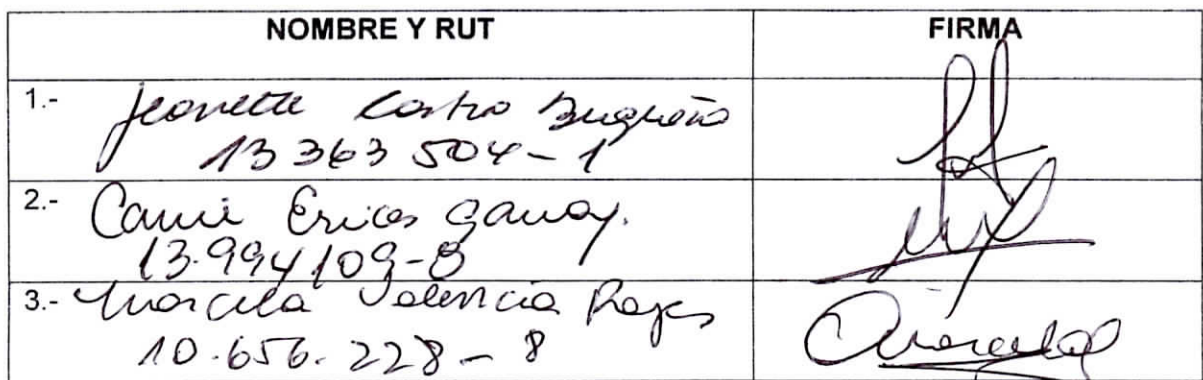 NOMBRE Y RUT FIRMA
1.- Jeanette Castro Bugueño
13 363 504-1
2.- Erices
13.994109-8
3.- Marcela Valencia Rojas
10.656.228-8